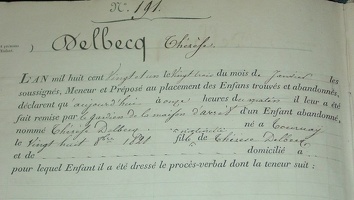 N. 191.
Delbecq Thérèse
L'AN mil huit cent vingt deux le vingt trois du mois de janvier les
soussignés, Meneur et Préposé au placement des Enfans trouvés et abandonnés,
déclarent qu'aujourd'hui à onze heures du matin il leur a été
fait remise par le gardien de la maison d'arrêt d'un Enfant abandonné,
nommé Thérèse Delbecq né à Tournay
le vingt huit 8bre 1821 fils de Thérèse Delbecq
et de domicilié à
pour lequel Enfant il a été dressé le procès-verbal dont la teneur suit :